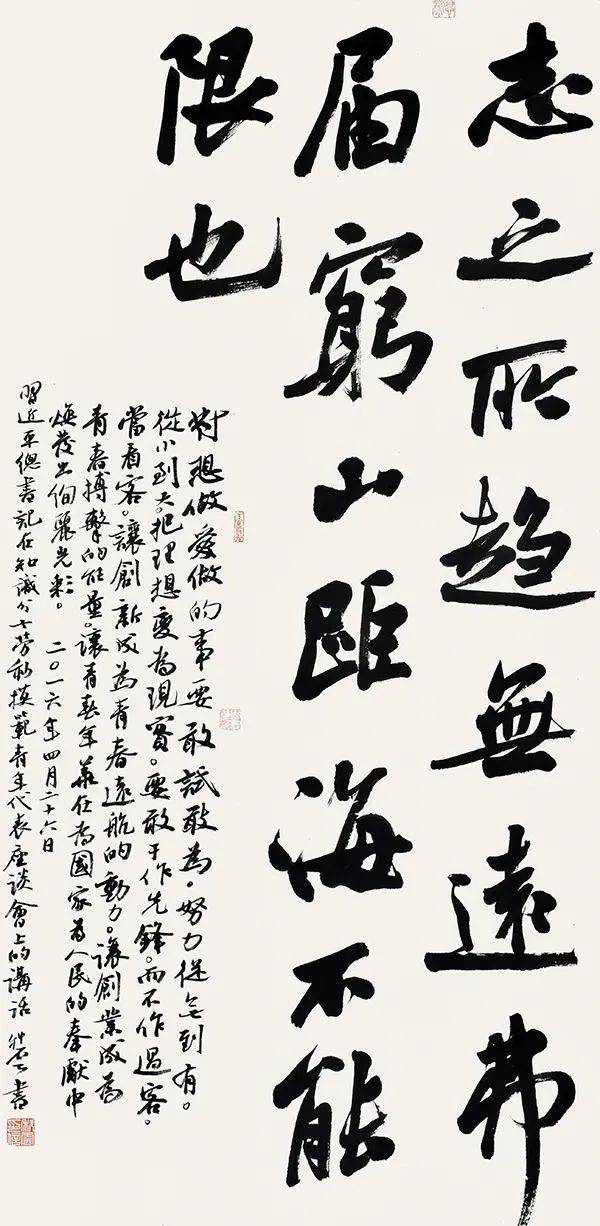 志之所趋無遠弗
届窮山距海不能
限也
對想做愛做的事要敢試敢為，努力從無到有。
從小到大。把理想變為現實。要敢于作先鋒。而不作過客、
當看客。讓創新成為青春遠航的動力。讓創業成為
青春搏擊的能量。讓青春年華在為國家為人民的奉獻中
煥發出絢麗光彩。 二〇一六年四月二十六日
習近平總書記在知識分子勞動模範青年代表座談會上的講話 書